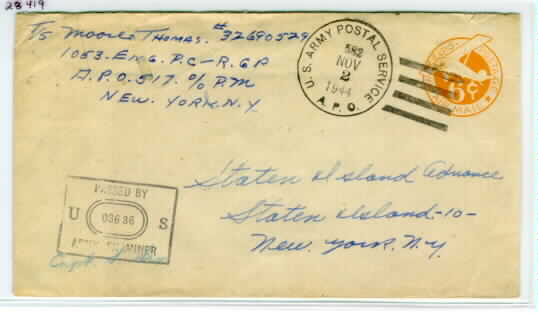 28 419
T/5 Moore Thomas. #32690529
1053. ENG. P.C-R. GP
A.P.O. 517. % P.M
NEW. YORK. N.Y.
U.S. ARMY POSTAL SERVICE
582
NOV
2
1944
A.P.O.
U.S. POSTAGE
6¢
AIR MAIL
Staten Island Advance
Staten Island-10-
New. York. N.Y.
PASSED BY
U 03636 S
ARMY EXAMINER
Capt.